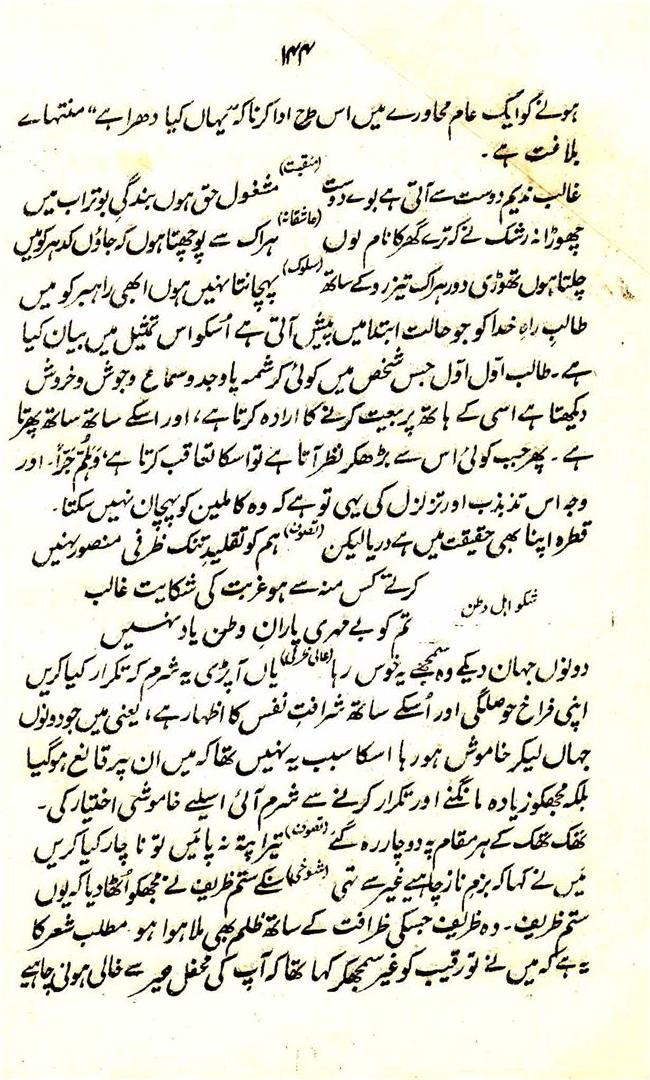 ۱۴۴
ہونے کو ایک عام محاورے میں اس طرح ادا کرنا کہ "یہاں کیا دھرا ہے" منتہاے
بلاغت ہے۔
غالب ندیم دوست سے آتی ہے بوے دوست (منقبت) مشغول حق ہوں بندگیِ بوتراب میں
چھوڑا نہ رشک نے کہ ترے گھر کا نام لوں (عاشقانہ) ہر اک سے پوچھتا ہوں کہ جاؤں کدہر کو میں
چلتا ہوں تھوڑی دور ہر اک تیز رو کے ساتھ (سلوک) پہچانتا نہیں ہوں ابھی راہبر کو میں
طالبِ راہِ خدا کو جو حالت ابتدا میں پیش آتی ہے اُسکو اس تمثیل میں بیان کیا
ہے۔ طالب اول اول جس شخص میں کوئی کرشمہ یا وجد و سماع و جوش و خروش
دیکھتا ہے اسی کے ہاتھ پر بیعت کرنے کا ارادہ کرتا ہے، اور اسکے ساتھ ساتھ پھرتا
ہے۔ پھر جب کوئی اس سے بڑھکر نظر آتا ہے تو اسکا تعاقب کرتا ہے، وَہَلُمَّ جَرّاً۔ اور
وجہ اس تذبذب اور تزلزل کی یہی تو ہے کہ وہ کاملین کو پہچان نہیں سکتا۔
قطرہ اپنا بھی حقیقت میں ہے دریا لیکن (تصوف) ہم کو تقلیدِ تنک ظرفیِ منصور نہیں
کرتے کس منہ سے ہو غربت کی شکایت غالب
شکو اہل وطن
تم کو بے مہریِ یارانِ وطن یاد نہیں
دونوں جہان دیکے وہ سمجھے یہ خوش رہا (عالی ظرفی) یاں آ پڑی یہ شرم کہ تکرار کیا کریں
اپنی فراخ حوصلگی اور اُسکے ساتھ شرافتِ نفس کا اظہار ہے، یعنی میں جو دونوں
جہاں لیکر خاموش ہو رہا اسکا سبب یہ نہیں تھا کہ میں ان پر قانع ہو گیا
بلکہ مجھکو زیادہ مانگنے اور تکرار کرنے سے شرم آئی اسلیے خاموشی اختیار کی۔
تھک تھک کے ہر مقام پہ دو چار رہ گئے (تصوف) تیرا پتہ نہ پائیں تو ناچار کیا کریں
میں نے کہا کہ بزمِ ناز چاہیے غیر سے تہی (شوخی) سنکے ستم ظریف نے مجھکو اُٹھا دیا کہ یوں
ستم ظریف۔ وہ ظریف جسکی ظرافت کے ساتھ ظلم بھی ملا ہوا ہو۔ مطلب شعر کا
یہ ہے کہ میں نے تو رقیب کو غیر سمجھکر کہا تھا کہ آپ کی محفل غیر سے خالی ہونی چاہیے